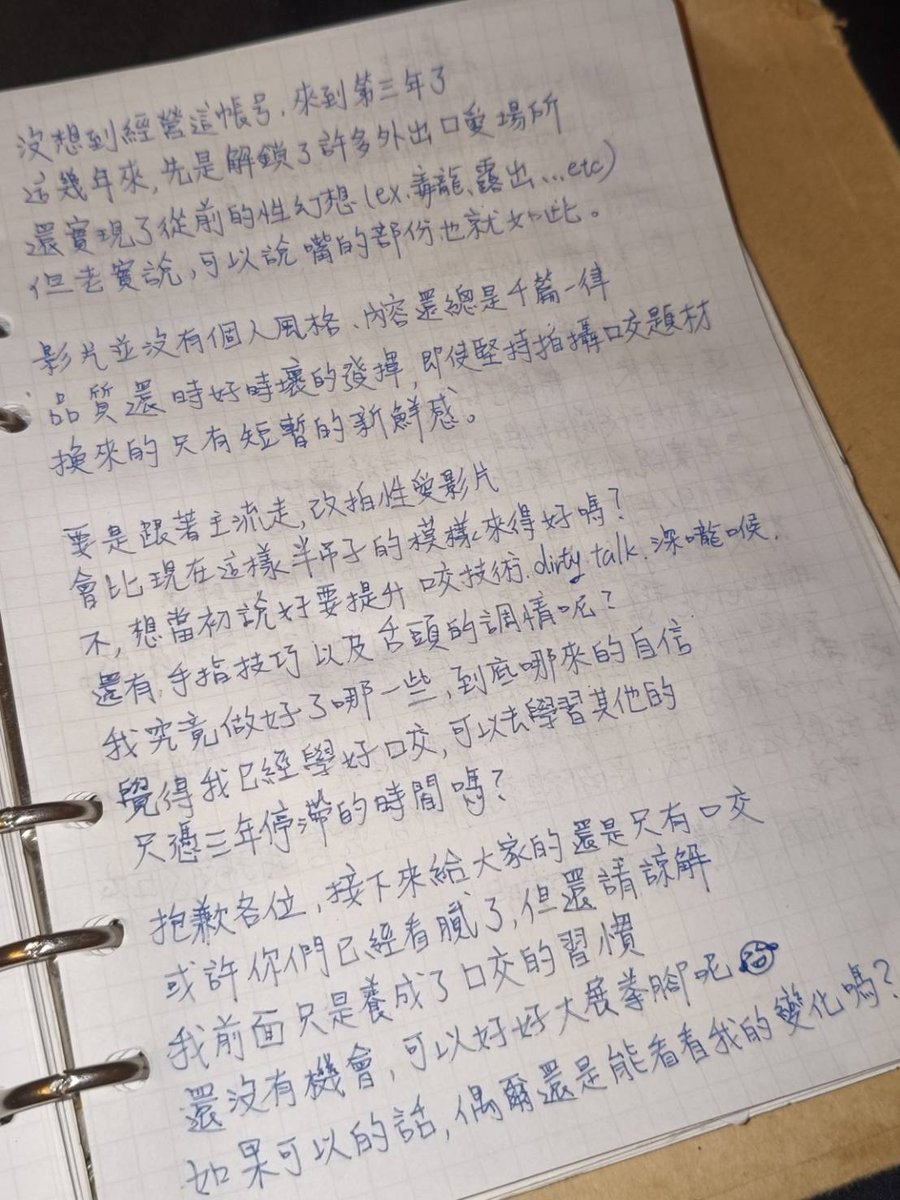 沒想到經營這帳号，來到第三年了
這幾年來，先是解鎖了許多外出口愛場所
還實現了從前的性幻想(ex.毒龍、露出...etc)
但老實說，可以說嘴的部份也就如此。
影片並沒有個人風格、內容還總是千篇一律
品質還時好時壞的發揮，即使堅持拍攝口交題材
換來的只有短暫的新鮮感。
要是跟著主流走，改拍性愛影片
會比現在這樣半吊子的模樣來得好嗎？
不，想當初說好要提升口交技術、dirty talk、深嚨喉、
還有手指技巧以及舌頭的調情呢？
我究竟做好了哪一些，到底哪來的自信
覺得我已經學好口交，可以去學習其他的
只憑三年停滯的時間嗎？
抱歉各位，接下來給大家的還是只有口交
或許你們已經看膩了，但還請諒解
我前面只是養成了口交的習慣
還沒有機會，可以好好大展拳腳呢
如果可以的話，偶爾還是能看看我的變化嗎？